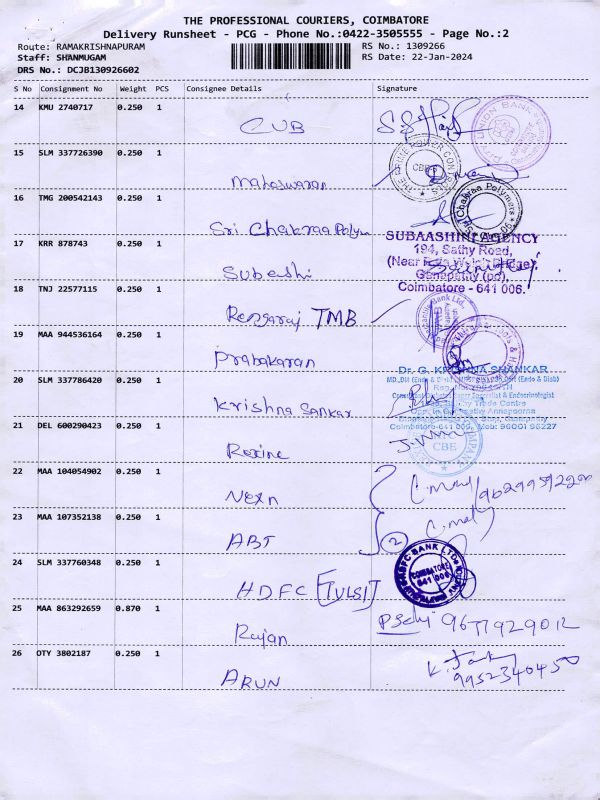 THE PROFESSIONAL COURIERS, COIMBATORE
Delivery Runsheet - PCG - Phone No.:0422-3505555 - Page No.:2
Route: RAMAKRISHNAPURAM
RS No.: 1309266
Staff: SHANMUGAM
RS Date: 22-Jan-2024
DRS No.: DCJB130926602
S No Consignment No Weight PCS Consignee Details Signature
14 KMU 2740717 0.250 1
CUB
UNION BANK
15 SLM 337726390 0.250 1
CBE
Maheswaran
16 TMG 200542143 0.250 1
Sri Chakraa Polym
Sri Chakraa Polymers
17 KRR 878743 0.250 1
SUBAASHINI AGENCY
194, Sathy Road,
Subashi
Ganapathy (po),
Coimbatore - 641 006.
18 TNJ 22577115 0.250 1
Rengaraj TMB
19 MAA 944536164 0.250 1
Prabakaran
20 SLM 337786420 0.250 1
Dr. G. KRISHNA SHANKAR
Krishna Sankar
Coimbatore-641 006, Mob: 96001 96227
21 DEL 600290423 0.250 1
CBE
Rexine
22 MAA 104054902 0.250 1
Nexn
23 MAA 107352138 0.250 1
ABT
2
24 SLM 337760348 0.250 1
HDFC [TULSI]
HDFC BANK LTD
COIMBATORE
641 006
25 MAA 863292659 0.870 1
9677929012
Rajan
26 OTY 3802187 0.250 1
9952340450
ARUN